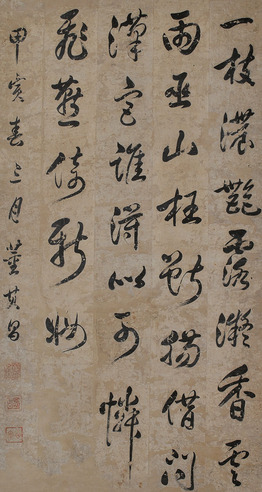 一枝濃艷露凝香雲
雨巫山枉斷腸借問
漢宮誰得似可憐
飛燕倚新妝
甲寅春三月董其昌